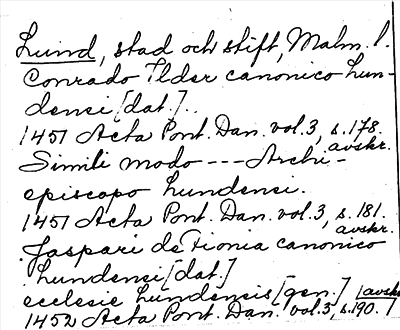 Lund, stad och stift, Malm. l.
Conrado Ilder canonico Lun-
densi [dat.]..
1451 Acta Pont. Dan. vol. 3, s. 178.
avskr.
Simili modo --- Archi-
episcopo Lundensi.
1451 Acta Pont. Dan. vol. 3, s. 181.
avskr.
Jaspari de Fionia canonico
Lundensi [dat.]
ecclesie Lundensis [gen.]
1452 Acta Pont. Dan. vol. 3, s. 190.